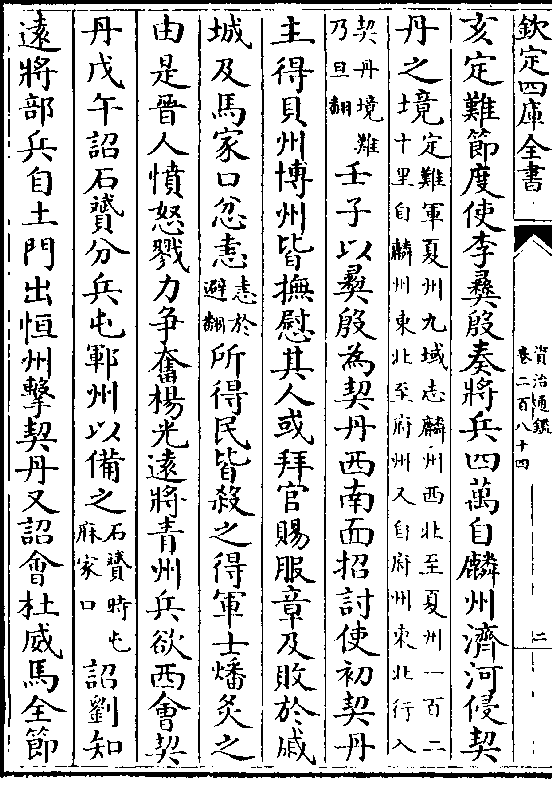 欽定四庫全書
資治通鑑
卷二百八十四
二
亥定難節度使李彞殷奏將兵四萬自麟州濟河侵契
丹之境定難軍夏州九域志麟州西北至夏州一百二
十里自麟州東北至府州又自府州東北行入
契丹境難
乃旦翻
壬子以彞殷為契丹西南面招討使初契丹
主得貝州博州皆撫慰其人或拜官賜服章及敗於戚
城及馬家口忿恚恚於
避翻
所得民皆殺之得軍士燔炙之
由是晉人憤怒戮力争奮楊光遠將青州兵欲西會契
丹戊午詔石贇分兵屯鄆州以備之石贇時屯
麻家口
詔劉知
遠將部兵自土門出恒州擊契丹又詔會杜威馬全節